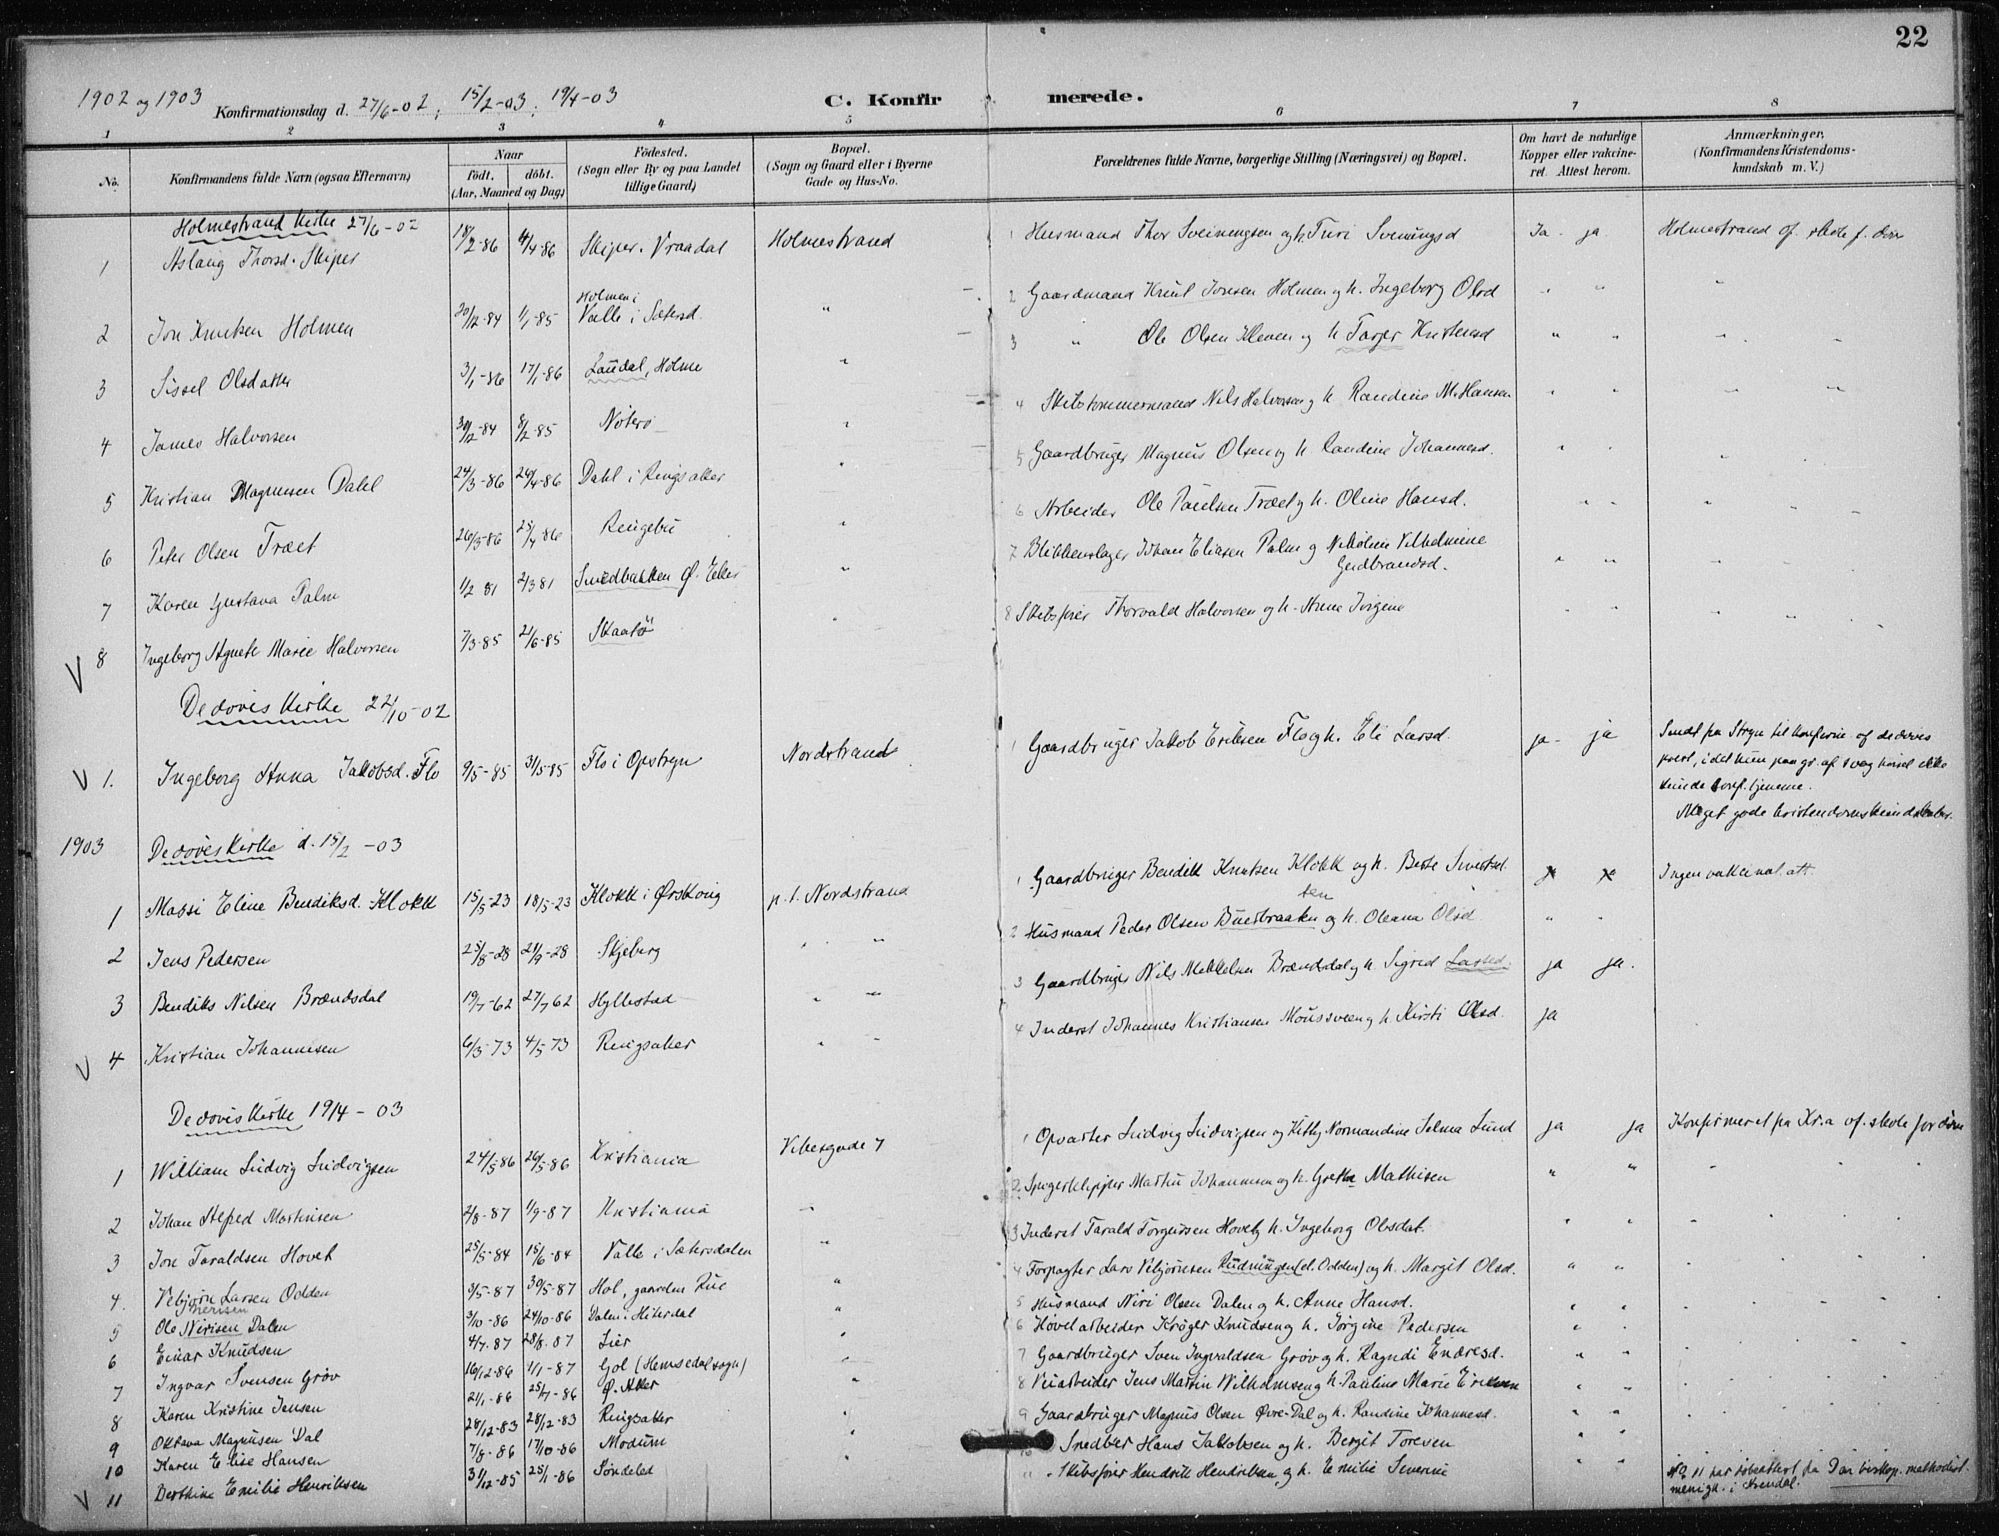 22
1902 og 1903 Konfirmationsdag d. 27/6-02; 15/2-03; 19/4-03 C. Konfirmerede.
1 2 3 4 5 6 7 8
No. Konfirmandens fulde Navn (ogsaa Efternavn) Naar født. døbt. (Aar, Maaned og Dag) Fødested. (Sogn eller By og paa Landet tillige Gaard) Bopæl. (Sogn og Gaard eller i Byerne Gade og Hus-No. Forældrenes fulde Navne, borgerlige Stilling (Næringsvei) og Bopæl. Om havt de naturlige Kopper eller vakcineret. Attest herom. Anmærkninger, (Konfirmandens Kristendomskundskab m. V.)
Holmestrand Kirke 27/6-02
1 Aslaug Thorsd. Skiper 18/2-86 4/4-86 Skiper. Vraadal Holmestrand 1 Husmand Thor Sveinungsen og h. Turi Sveinungsd Ja - ja Holmestrand of. skole f. døve
2 Jon Knutsen Holmen 20/12-84 1/1-85 Holmen i Valle i Sætersd. " 2 Gaardmand Knut Jonsen Holmen og h. Ingeborg Olsd " " "
3 Sissel Olsdatter 3/1-86 17/1-86 Laudal, Holme " 3 " Ole Olsen Kleven og h Tarjer Kristensd " " " "
4 James Halvorsen 30/12-84 8/2-85 Nøterø " 4 Skibstømmermand Nils Halvorsen og h. Randine M. Hansen " " " "
5 Kristian Magnusen Dahl 24/3-86 26/4-86 Dahl i Ringsaker " 5 Gaardbruger Magnus Olsen og h Randine Johannesd. " " "
6 Peter Olsen Træet 26/3-86 25/4-86 Ringebu " 6 Arbeider Ole Paulsen Træet og h. Oline Hansd. " " " "
7 Karen Gustava Palm 1/2 81 2/3 81 Smedbakken Ø. Eker " 7 Blikkenslager Johan Eliasen Palm og Nikoline Vilhelmine Gudbrandsd. " " " "
8 Ingeborg Agnete Marie Halvorsen 7/3-85 21/6-85 Skaatø " 8 Skibsfører Thorvald Halvorsen og h. Anne Jørgine " " " "
Dedøves Kirke 22/10-02
1. Ingeborg Anna Jakobsd. Flo 9/5-85 31/5-85 Flo i Opstryn Nordstrand 1 Gaardbruger Jakob Eriksen Flo og h. Eli Larsd. ja - ja Sendt fra Stryn til konfirm. af dedøves
prest, idet hun paa gr. af svag hørsel ikke
kunde konf. hjemme.
Meget gode kristendomskundskaber.
1903 Dedøves Kirke d. 15/2-03
1 Massi Eline Bendiksd. Klokk 15/5-23 18/5-23 Klokk i Ørskoug p. t. Nordstrand 1 Gaardbruger Bendik Knutsen Klokk og h. Berte Sivertsd. Ingen vakcinat. att.
2 Jens Pedersen 25/8-28 21/9-28 Skjeberg " " 2 Husmand Peder Olsen Buesbraaten og h. Oleana Olsd. " "
3 Bendiks Nilsen Brændsdal 19/7-62 27/7 62 Hyllestad " " 3 Gaardbruger Nils Mikkelsen Brændsdal og h. Sigrid Larsd. ja ja.
4 Kristian Johannesen 6/3-73 4/5 73 Ringsaker " " 4 Inderst Johannes Kristiansen Moussveen og h. Kirsti Olsd. ja
Dedøves Kirke 19/4-03
1 William Ludvig Ludvigsen 24/5-86 26/5-86 Kristiania Vibesgade 7 1 Opvarter Ludvig Ludvigsen og Kitty Normandine Selma Lund ja ja Konfirmeret fra Kr.a of. skole for døve
2 Johan Alfred Martinsen 2/8-87 1/9-87 Kristiania " 2 Spigerklipper Martin Johannesen og h. Grethe Mathisen " " " "
3 Jon Taraldsen Hovet 25/5-84 15/6-84 Valle i Sætersdalen " 3 Inderst Tarald Torgeirsen Hovet og h. Ingeborg Olsdat. " " " "
4. Vebjørn Larsen Odden 3/5-87 30/5-87 Hol, gaarden Rue " 4 Forpagter Lars Vebjørnsen Rudningen (el. Odden) og h. Margit Olsd. " " " "
5 Ole Nirisen Dalen 3/10-86 24/10-86 Dalen. Hiterdal " 5 Husmand Niri Olsen Dalen og h. Anne Hansd. " " " "
6 Einar Knudsen 4/7-87 28/8-87 Lier " 6 Høvelarbeider Krøger Knudsen og h. Jørgine Pedersen " " " "
7 Ingvar Svensen Grøv 16/12-86 1/1-87 Gol (Hemsedal sogn) " 7 Gaardbruger Sven Ingvaldsen Grøv og h. Ragndi Endresd. " " " "
8 Karen Kristine Jensen 21/1-86 25/7-86 Ø. Aker " 8 Veiarbeider Jens Martin Wilhelmsen og h. Pauline Marie Eriksen " " " "
9 Oktava Magnusen Dal 28/12-83 28/12-83 Ringsaker " 9 Gaardbruger Magnus Olsen Øvre-Dal og h. Randine Johannesd. " " " "
10 Karen Elise Hansen 7/8-86 17/10-86 Modum " 10 Snedker Hans Jakobsen og h. Bergit Toresen " " " "
11 Berthine Emilie Henriksen 31/12-85 25/1-86 Søndeled " 11 Skibsfører Hendrik Hendriksen og h. Emilie Severine " " No 11 har døbeattest fra Den biskop. methodist.
menigh. i Arendal.